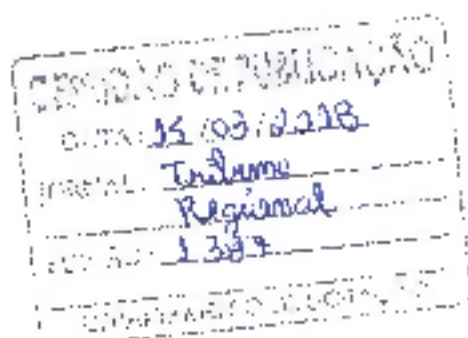 CERTIDÃO DE PUBLICAÇÃO
DATA: 15/03/2018
JORNAL: Tribuna
Regional
EDIÇÃO: 1387